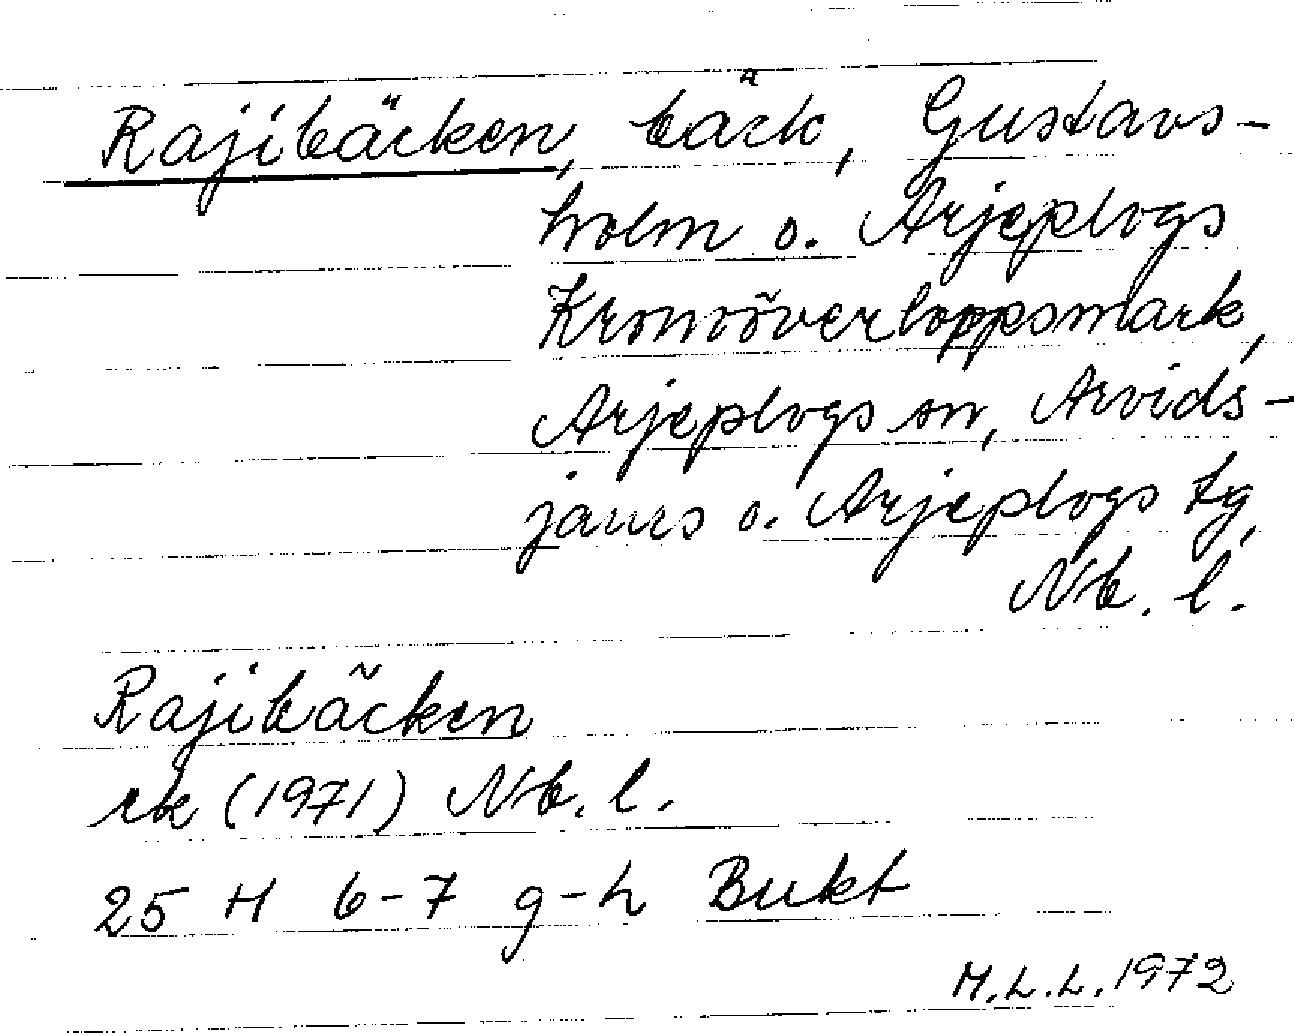 Rajibäcken, bäck, Gustavs-
holm o. Arjeplogs
Kronoöverloppsmark,
Arjeplogs sn, Arvids-
jaurs o. Arjeplogs tg,
Nb. l.
Rajibäcken
rk (1971) Nb. l.
25 H 6-7 g-h Bukt
M.L.L. 1972